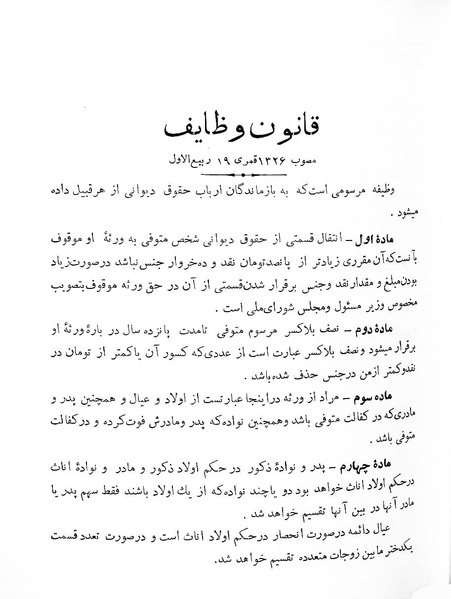 قانون وظایف
مصوب ۱۳۲۶ قمری ۱۹ ربیع‌الاول
وظیفه مرسومی است که به بازماندگان ارباب حقوق دیوانی از هر قبیل داده
میشود .
مادهٔ اول – انتقال قسمتی از حقوق دیوانی شخص متوفی به ورثهٔ او موقوف
بآنست که آن مقرری زیادتر از پانصد تومان نقد و ده خروار جنس نباشد در صورت زیاد
بودن مبلغ و مقدار نقد و جنس برقرار شدن قسمتی از آن در حق ورثه موقوف بتصویب
مخصوص وزیر مسئول و مجلس شورای ملی است .
مادهٔ دوم – نصف بلاکسر مرسوم متوفی تا مدت پانزده سال در بارهٔ ورثهٔ او
برقرار میشود و نصف بلاکسر عبارت است از عددی که کسور آن یا کمتر از تومان در
نقد و کمتر از من در جنس حذف شده باشد .
ماده سوم – مراد از ورثه در اینجا عبارتست از اولاد و عیال و همچنین پدر و
مادری که در کفالت متوفی باشد و همچنین نواده که پدر و مادرش فوت کرده و در کفالت
متوفی باشد .
مادهٔ چهارم – پدر و نوادهٔ ذکور در حکم اولاد ذکور و مادر و نوادهٔ اناث
در حکم اولاد اناث خواهد بود دو یا چند نواده که از یك اولاد باشند فقط سهم پدر یا
مادر آنها در بین آنها تقسیم خواهد شد .
عیال دائمه در صورت انحصار در حکم اولاد اناث است و در صورت تعدد قسمت
یکدختر ما بین زوجات متعدده تقسیم خواهد شد.